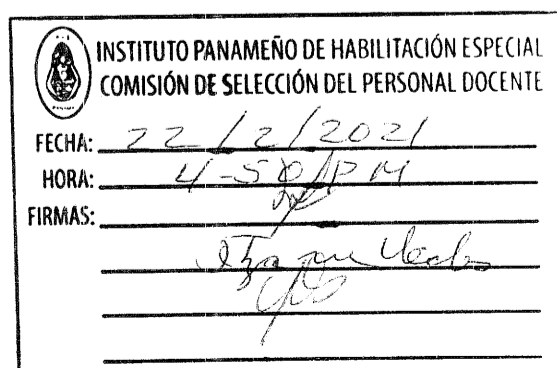 INSTITUTO PANAMEÑO DE HABILITACIÓN ESPECIAL
COMISIÓN DE SELECCIÓN DEL PERSONAL DOCENTE
FECHA: 22/2/2021
HORA: 4-50/PM
FIRMAS: